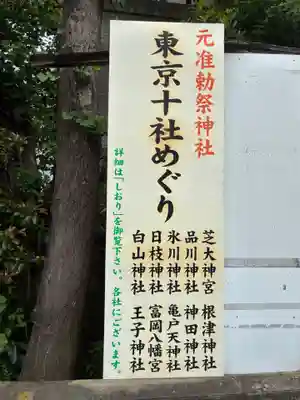 元准勅祭神社
東京十社めぐり
芝大神宮 根津神社
品川神社 神田神社
氷川神社 亀戸天神社
日枝神社 富岡八幡宮
白山神社 王子神社
詳細は「しおり」を御覧下さい。各社にございます。